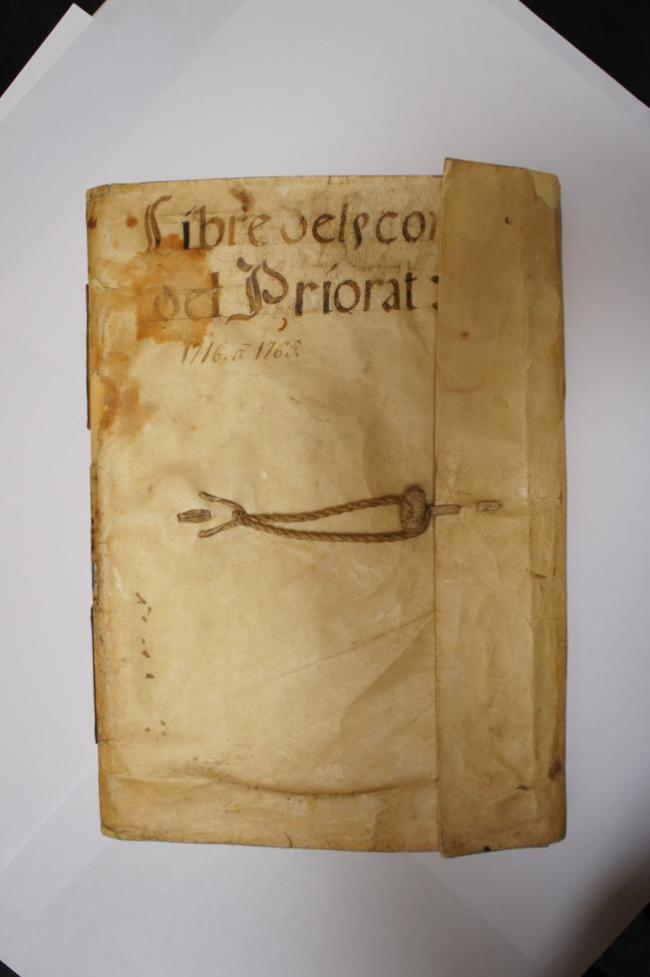 Libre dels con
del Priorat :
1716. a 1765.